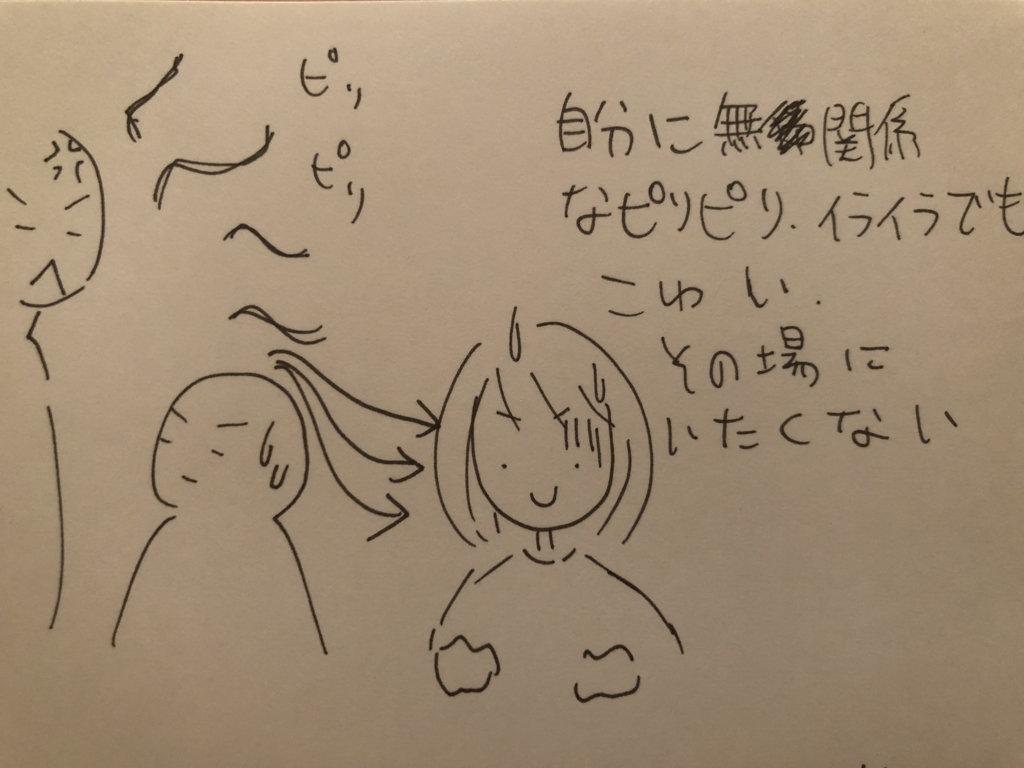 ピリ
ピリ
自分に無関係
なピリピリ.イライラでも
こわい.
その場に
いたくない